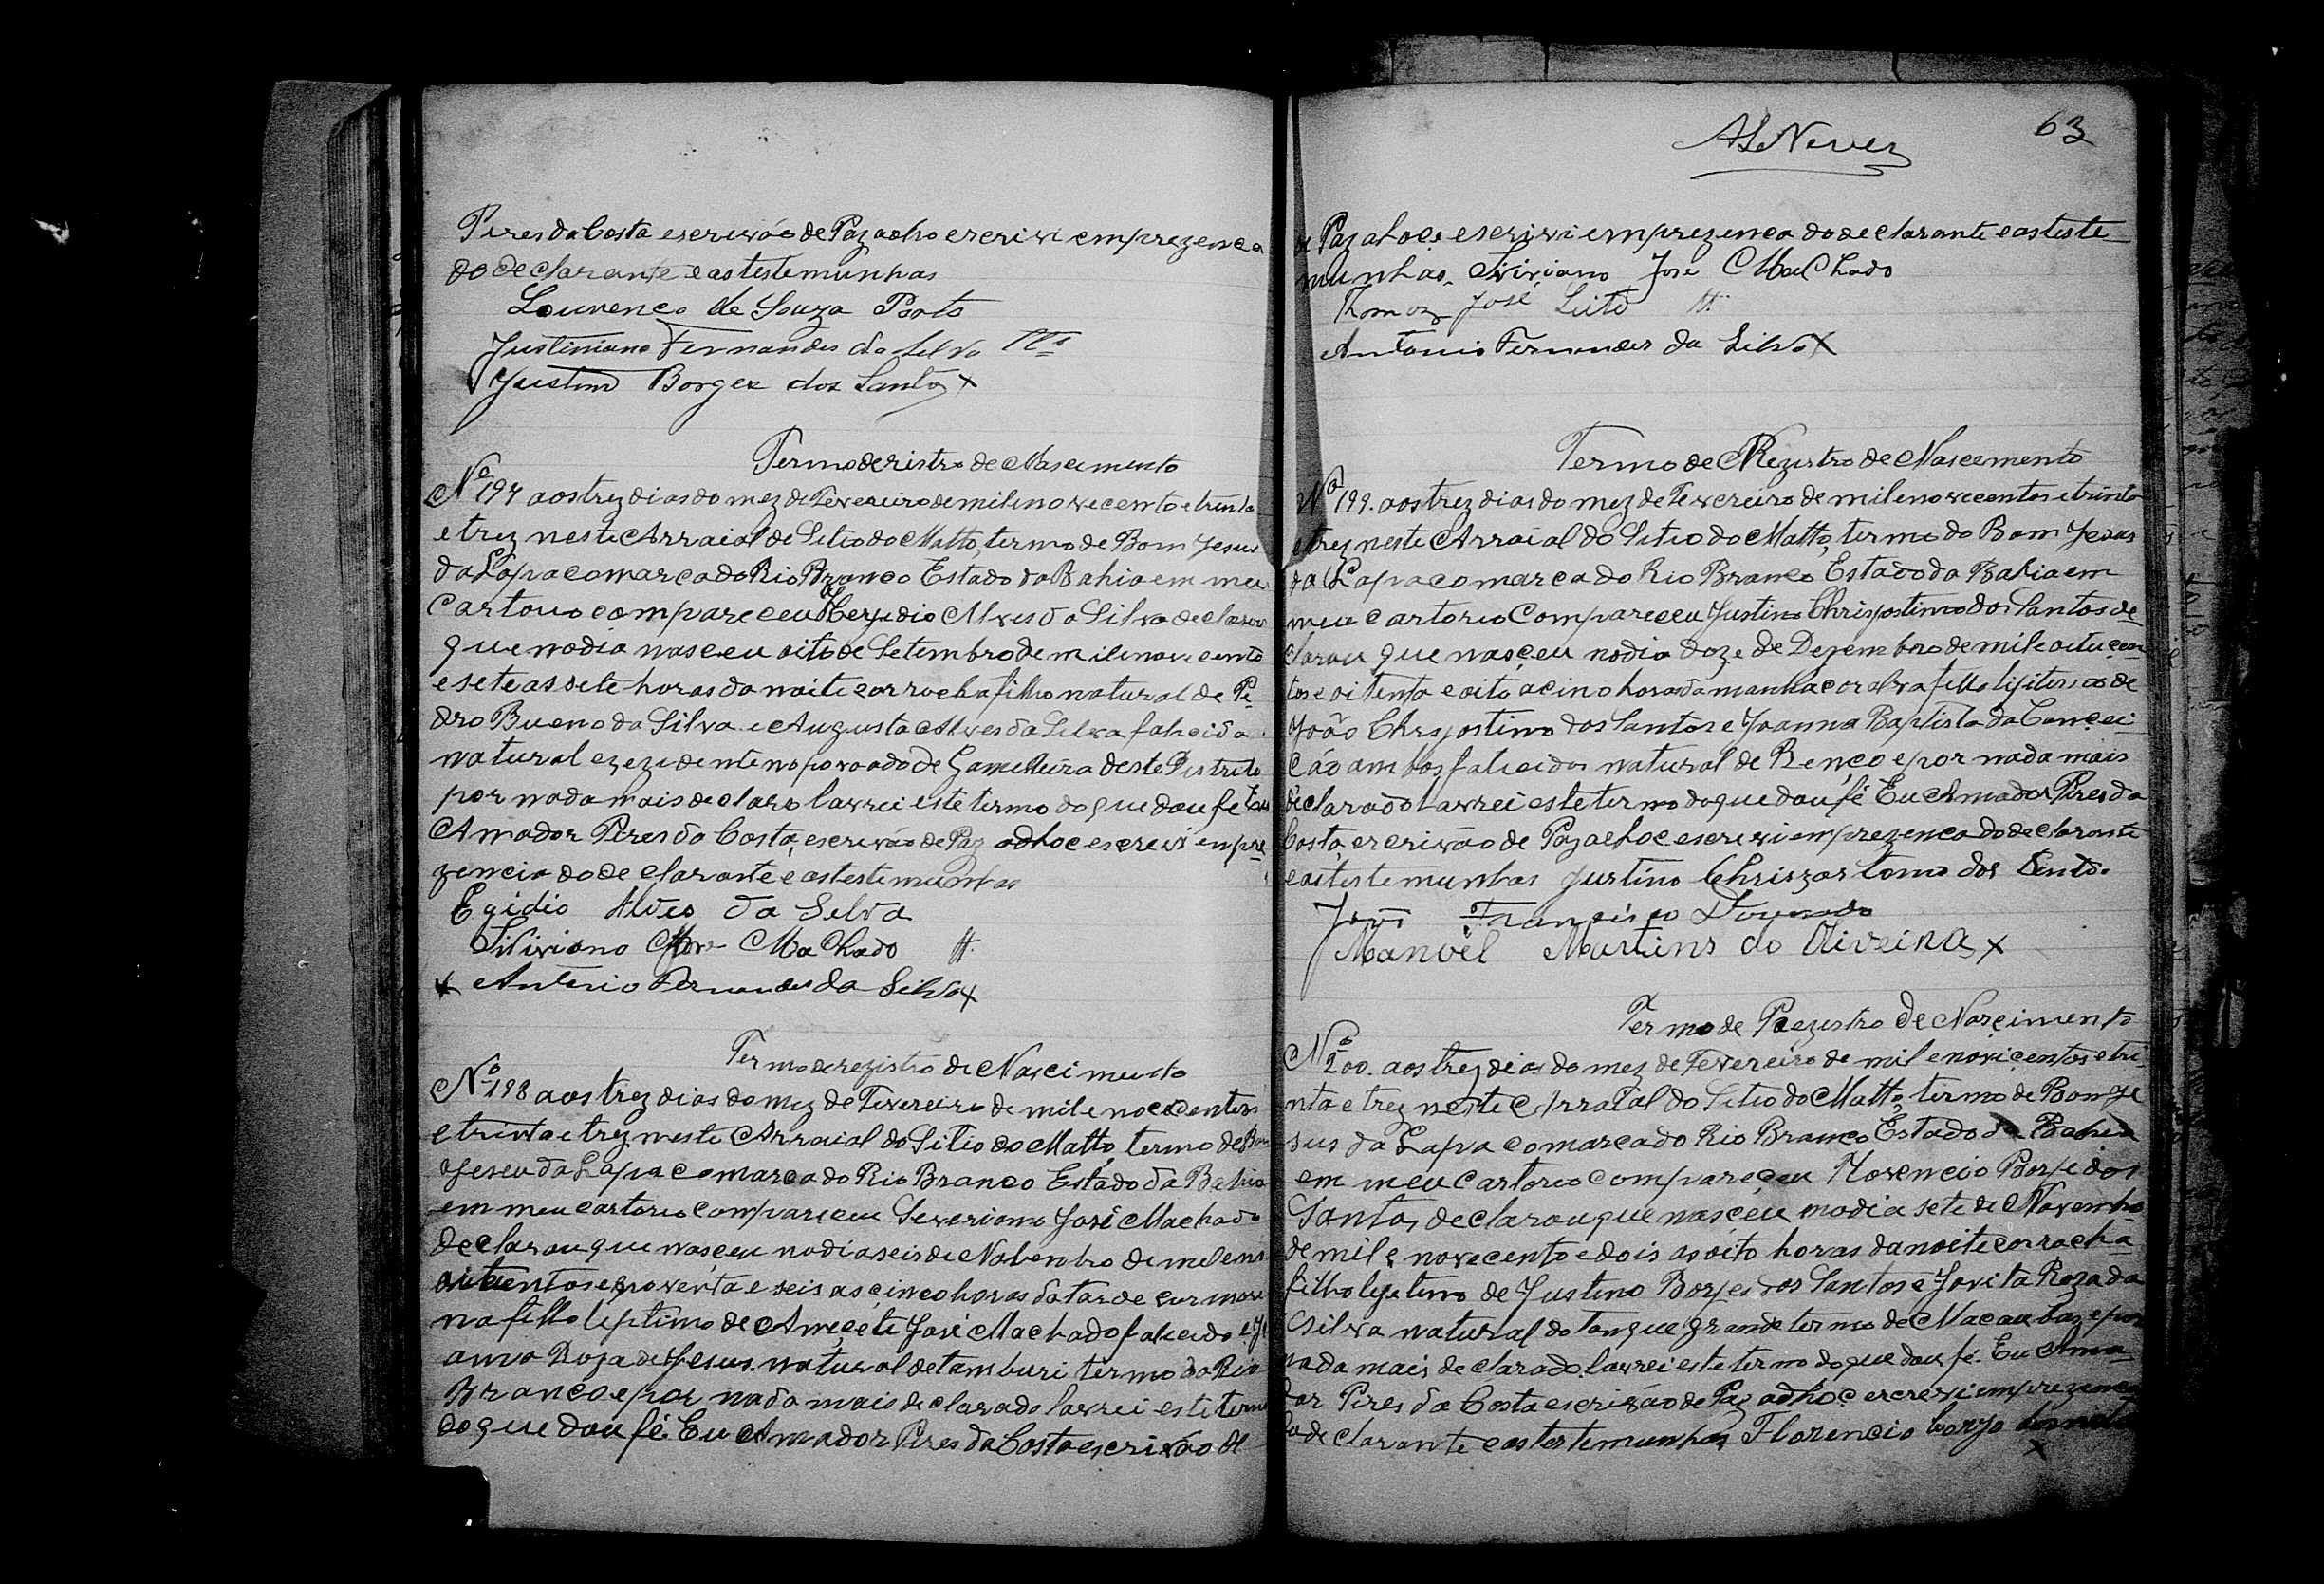 Pires da Costa escrivão de Paz adho escrivi em prezenca
do declarante e as testemunhas
Lourenco de Souza Porto
Justiniano Fernandes da Silva
Justino Borges dos Santos X
Termo de ristro de Nascimento
Nº 197 aos trez dias do mez de Fevereiro de mil e novecento e trinta
e trez neste Arraial de Sitio do Matto, termo de Bom Jesus
da Lapa comarca do Rio Branco Estado da Bahia em meu
Cartorio compareceu Alves da Silva declarou
que no dia nasceu oito de Setembro de mil e nove cento
e sete as sete horas da noite cor rocha filho natural de Pe
dro Bueno da Silva e Augusta Alves da Silva falicida
natural e rezidente no povoado de Gamelleira deste Distrito
por nada mais declaro lavrei este termo do que dou fé Eu
Amador Pires da Costa, escrivão de Paz adhoc escrevi em pre
zencia do de clarante e as testemunhas
Egidio Alves da Silva
Siliviano Jose Machado
X Antonio Fernandes da Silva X
Termo de registro de Nascimento
Nº 198 aos trez dias do mez de Fevereiro de mil e
e trinta e trez neste Arraial do Sitio do Matto, termo de Bom
Jesus da Lapa comarca do Rio Branco Estado da Bahia
em meu cartorio compareceu Severiano José Machado
declarou que nasceu no dia seis de Nobembro de mil e
oitucentos e noventa e seis as cinco horas da tarde cor more
na filho lyitimo de José Machado falicido e Jo
anna Roza de Jesus natural de tamburi termo do Rio
Branco e por nada mais declarado lavrei este termo
do que dou fé. Eu Amador Pires da Costa escrivão de
AS Neves
63
de Paz ahoc escrivi em prezenca do declarante e as teste
munhas. Siviriano José Machado
Thomaz José Leite
Antonio Fernandes da Silva X
Termo de Rezistro de Nascemento
Nº 199. aos trez dias do mez de Fevereiro de mil e novecentos e trinta
e trez neste Arraial do Sitio do Matto, termo do Bom Jesus
da Lapa comarca do Rio Branco Estado da Bahia em
meu cartorio Compareceu Justino Chrisostimo dos Santos de
clarou que nasceu no dia doze de Dezembro de mil e oitucen
tos e oitenta e oito a cino horas da manha cor alva filho lijitimo de
João Chrysostimo dos Santos e Joanna Baptista da Concei
cão ambos falicidos natural de Benço e por nada mais
declarado lavrei este termo do que dou fé Eu Amador Pires da
Costa, ercrivão de Paz ahoc escrivi em prezenca do declarante
e as testemunhas Justino Chriszostomo dos Santo.
João Francisco Dourado
Manoel Martins do Oliveira X
Termo de Rezistro de Nascimento
Nº 200. aos trez dias do mez de Fevereiro de mil e novicentos e tri
nta e trez neste Arraial do Sitio do Matto, termo de Bom Je
sus da Lapa comarca do Rio Branco Estado da Bahia
em meu cartorio compareceu Florencio Borje dos
Santos, declarou que nasceu no dia sete de Novembro
de mil e novecento e dois as oito horas da noite cor rocha
filho lyitimo de Justino Borjes dos Santos e Jovita Roza da
Silva natural do tanque grande termo de Macaubas e por
nada mais declarado. lavrei este termo do que dou fé. Eu Ama
dor Pires da Costa escrivão de Paz adhoc escrevi em prezenca
do declarante e as testemunhas Florencio borjo
X